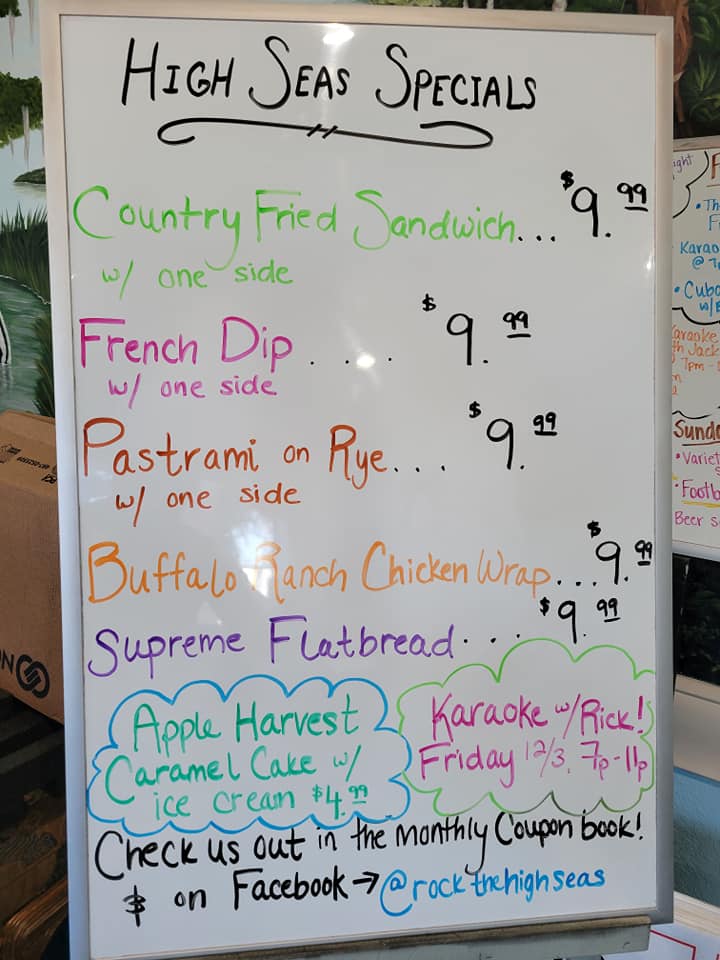 HIGH SEAS SPECIALS
Country Fried Sandwich... $9.99
w/ one side
French Dip .... $9.99
w/ one side
Pastrami on Rye... $9.99
w/ one side
Buffalo Ranch Chicken Wrap...$9.99
Supreme Flatbread... $9.99
Apple Harvest
Caramel Cake w/
ice cream $4.99
Karaoke w/Rick!
Friday 12/3, 7p-11p
Check us out in the monthly Coupon book!
& on Facebook → @rockthehighseas
Karao
@
• Cubo
Karaoke
Jack
7pm -
Sunda
• Variet
• Footb
Beer s